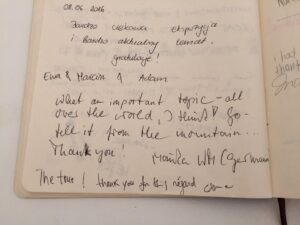 08.06 2016
Bardzo ciekawa ekspozycja
i bardzo aktualny temat.
gratulacje!
Ewa & Marcin & Adam
What an important topic - all
over the world, I think! Go-
tell it from the mountain...
Thank you!
Monika (Germany)
The true! thank you for this regard
i had
thank